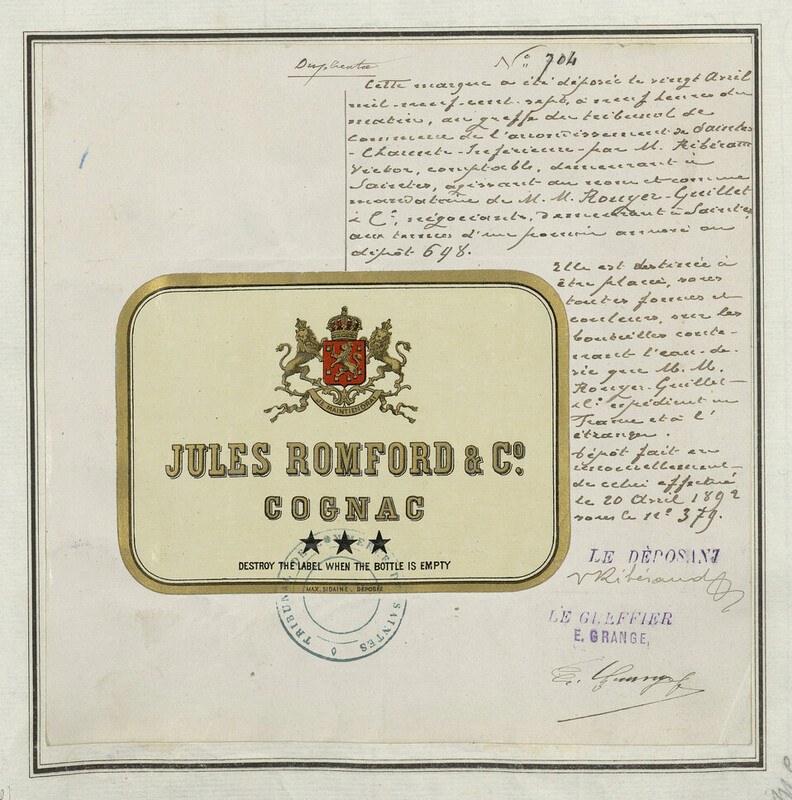 Duplicata
N° 704
Cette marque a été déposée le vingt Avril
mil-neuf-cent-sept, à neuf heures du
matin, au greffe du tribunal de
commerce de l'arrondissement de Saintes
-Charente-Inférieure-par M. Ribéraud
Victor, comptable, demeurant à
Saintes, agissant au nom et comme
mandataire de M. M. Rouyer-Guillet
& Cie, négociants, demeurant à Saintes,
aux termes d'un pouvoir annexé au
dépôt 698.
Elle est destinée à
être placée, sous
toutes formes et
couleurs, sur les
bouteilles conte-
nant l'eau-de-
vie que M. M.
Rouyer-Guillet-
& Cie expédient en
France et à l'
étranger.
Dépôt fait en
renouvellement
de celui effectué
le 20 Avril 1892
sous le N° 379.
JE MAINTIENDRAI
JULES ROMFORD & Cº.
COGNAC
DESTROY THE LABEL WHEN THE BOTTLE IS EMPTY
MAX. SIDAINE, DÉPOSÉE
TRIBUNAL DE COMMERCE DE SAINTES
LE DÉPOSANT
V Ribéraud
LE GREFFIER
E. GRANGE,
E. Grange